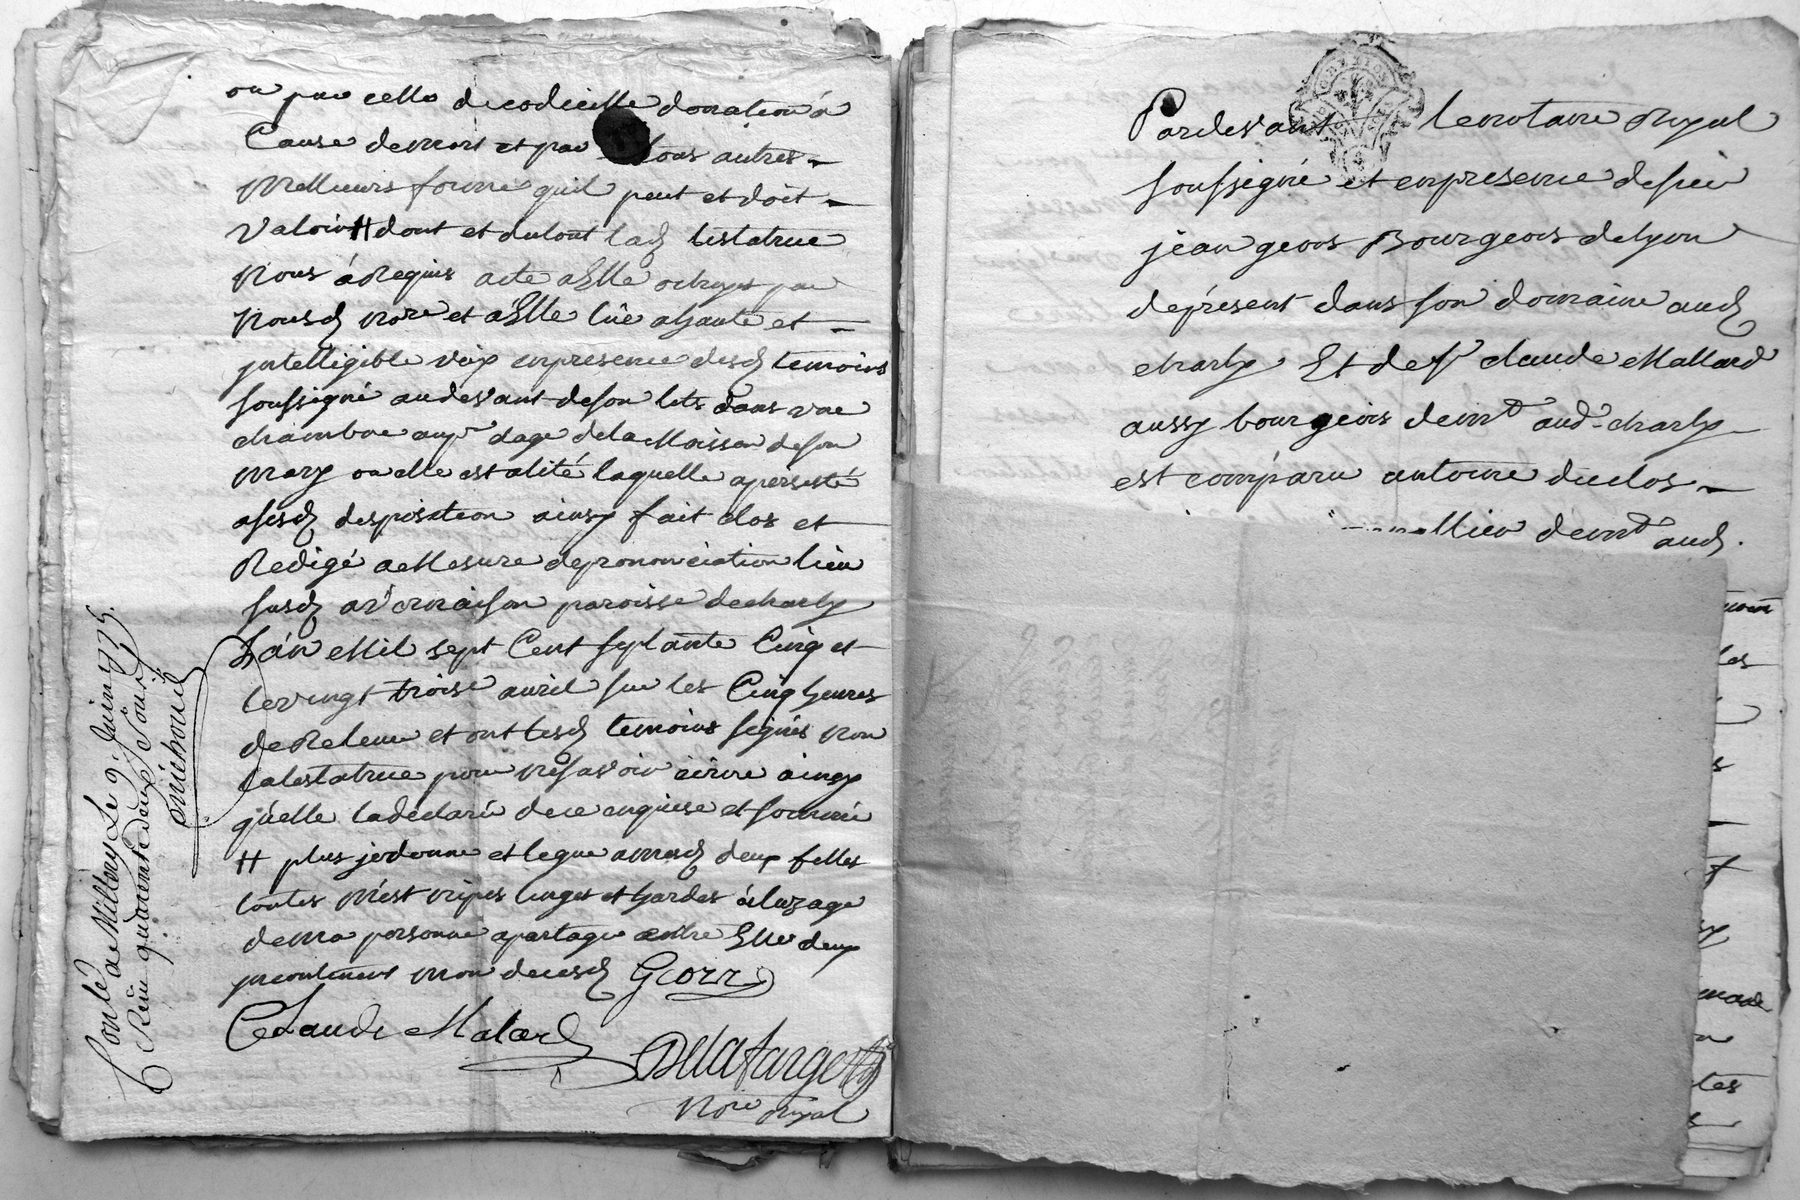 ou par celle de codicille donation à
Cause de mort et par tous autres
Meilleurs forme quil peut et doit
Valoir # dont et du tout lad testatrice
Nous à Requis acte a Elle octroyé par
Nousd Nore et a Elle lüe a haute et
jntelligible voix en presence desd temoins
soussigné au devant de son lits dans une
chambre au pr etage de la Maison de son
mary ou elle est alité laquelle a persisté
a sesd disposition ainsy fait clos et
Redigé a Mesure de prononciation lieu
susd paroisse de charly
L'an Mil sept Cent septante Cinq et
le vingt trois avril sur les Cinq heures
de Relevé et ont lesd temoins signés non
la testatrice pour ne savoir écrire ainsy
qu'elle la declaré de ce enquise et sommé
# plus je donne et legue a mesd deux filles
toutes mes nipes linges et hardes à luzage
de ma personne a partager entre Elles deux
jncontinent mon decesd Georr
Claude Malard
Delafarge
Nore Royal
Conlé a Millery Le 9. Juin 1775.
Reçu quarente deux Sous
Pardevant Le notaire Royal
soussigné et en presence de sieur
jean geors Bourgeois de lyon
de présent dans son domaine aud
charly Et de sr claude Mallard
aussy bourgeois demt aud charly
est compáru antoine duclos
demt aud.